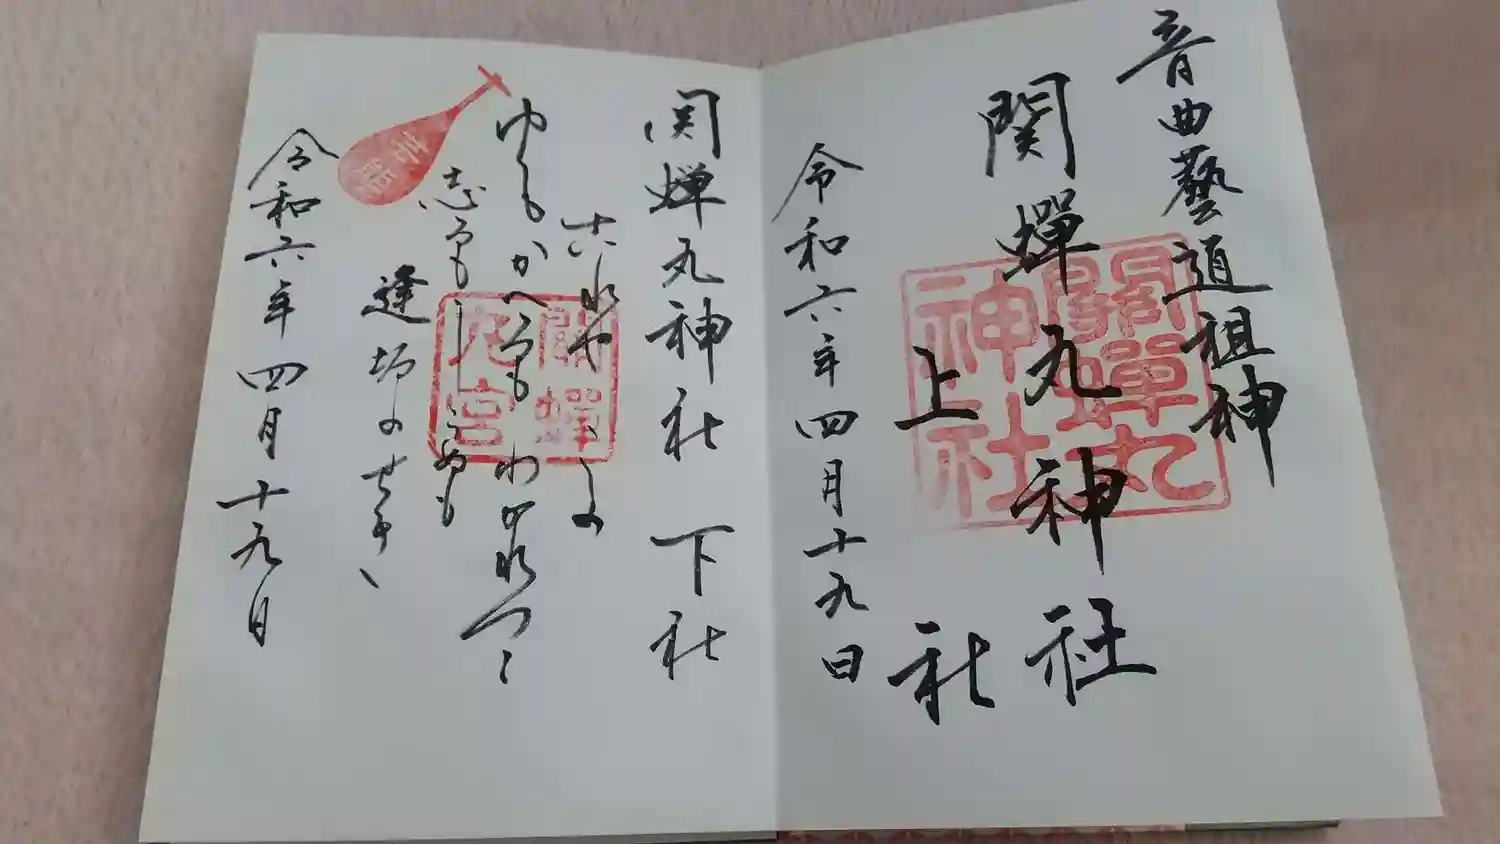 音曲藝道祖神
関蟬丸神社
上社
關蟬丸神社
令和六年四月十九日
関蝉丸神社 下社
これやこの
ゆくもかへるもわかれつゝ
志るもしらぬも
逢坂のせき
関蝉丸宮
芸能
令和六年四月十九日